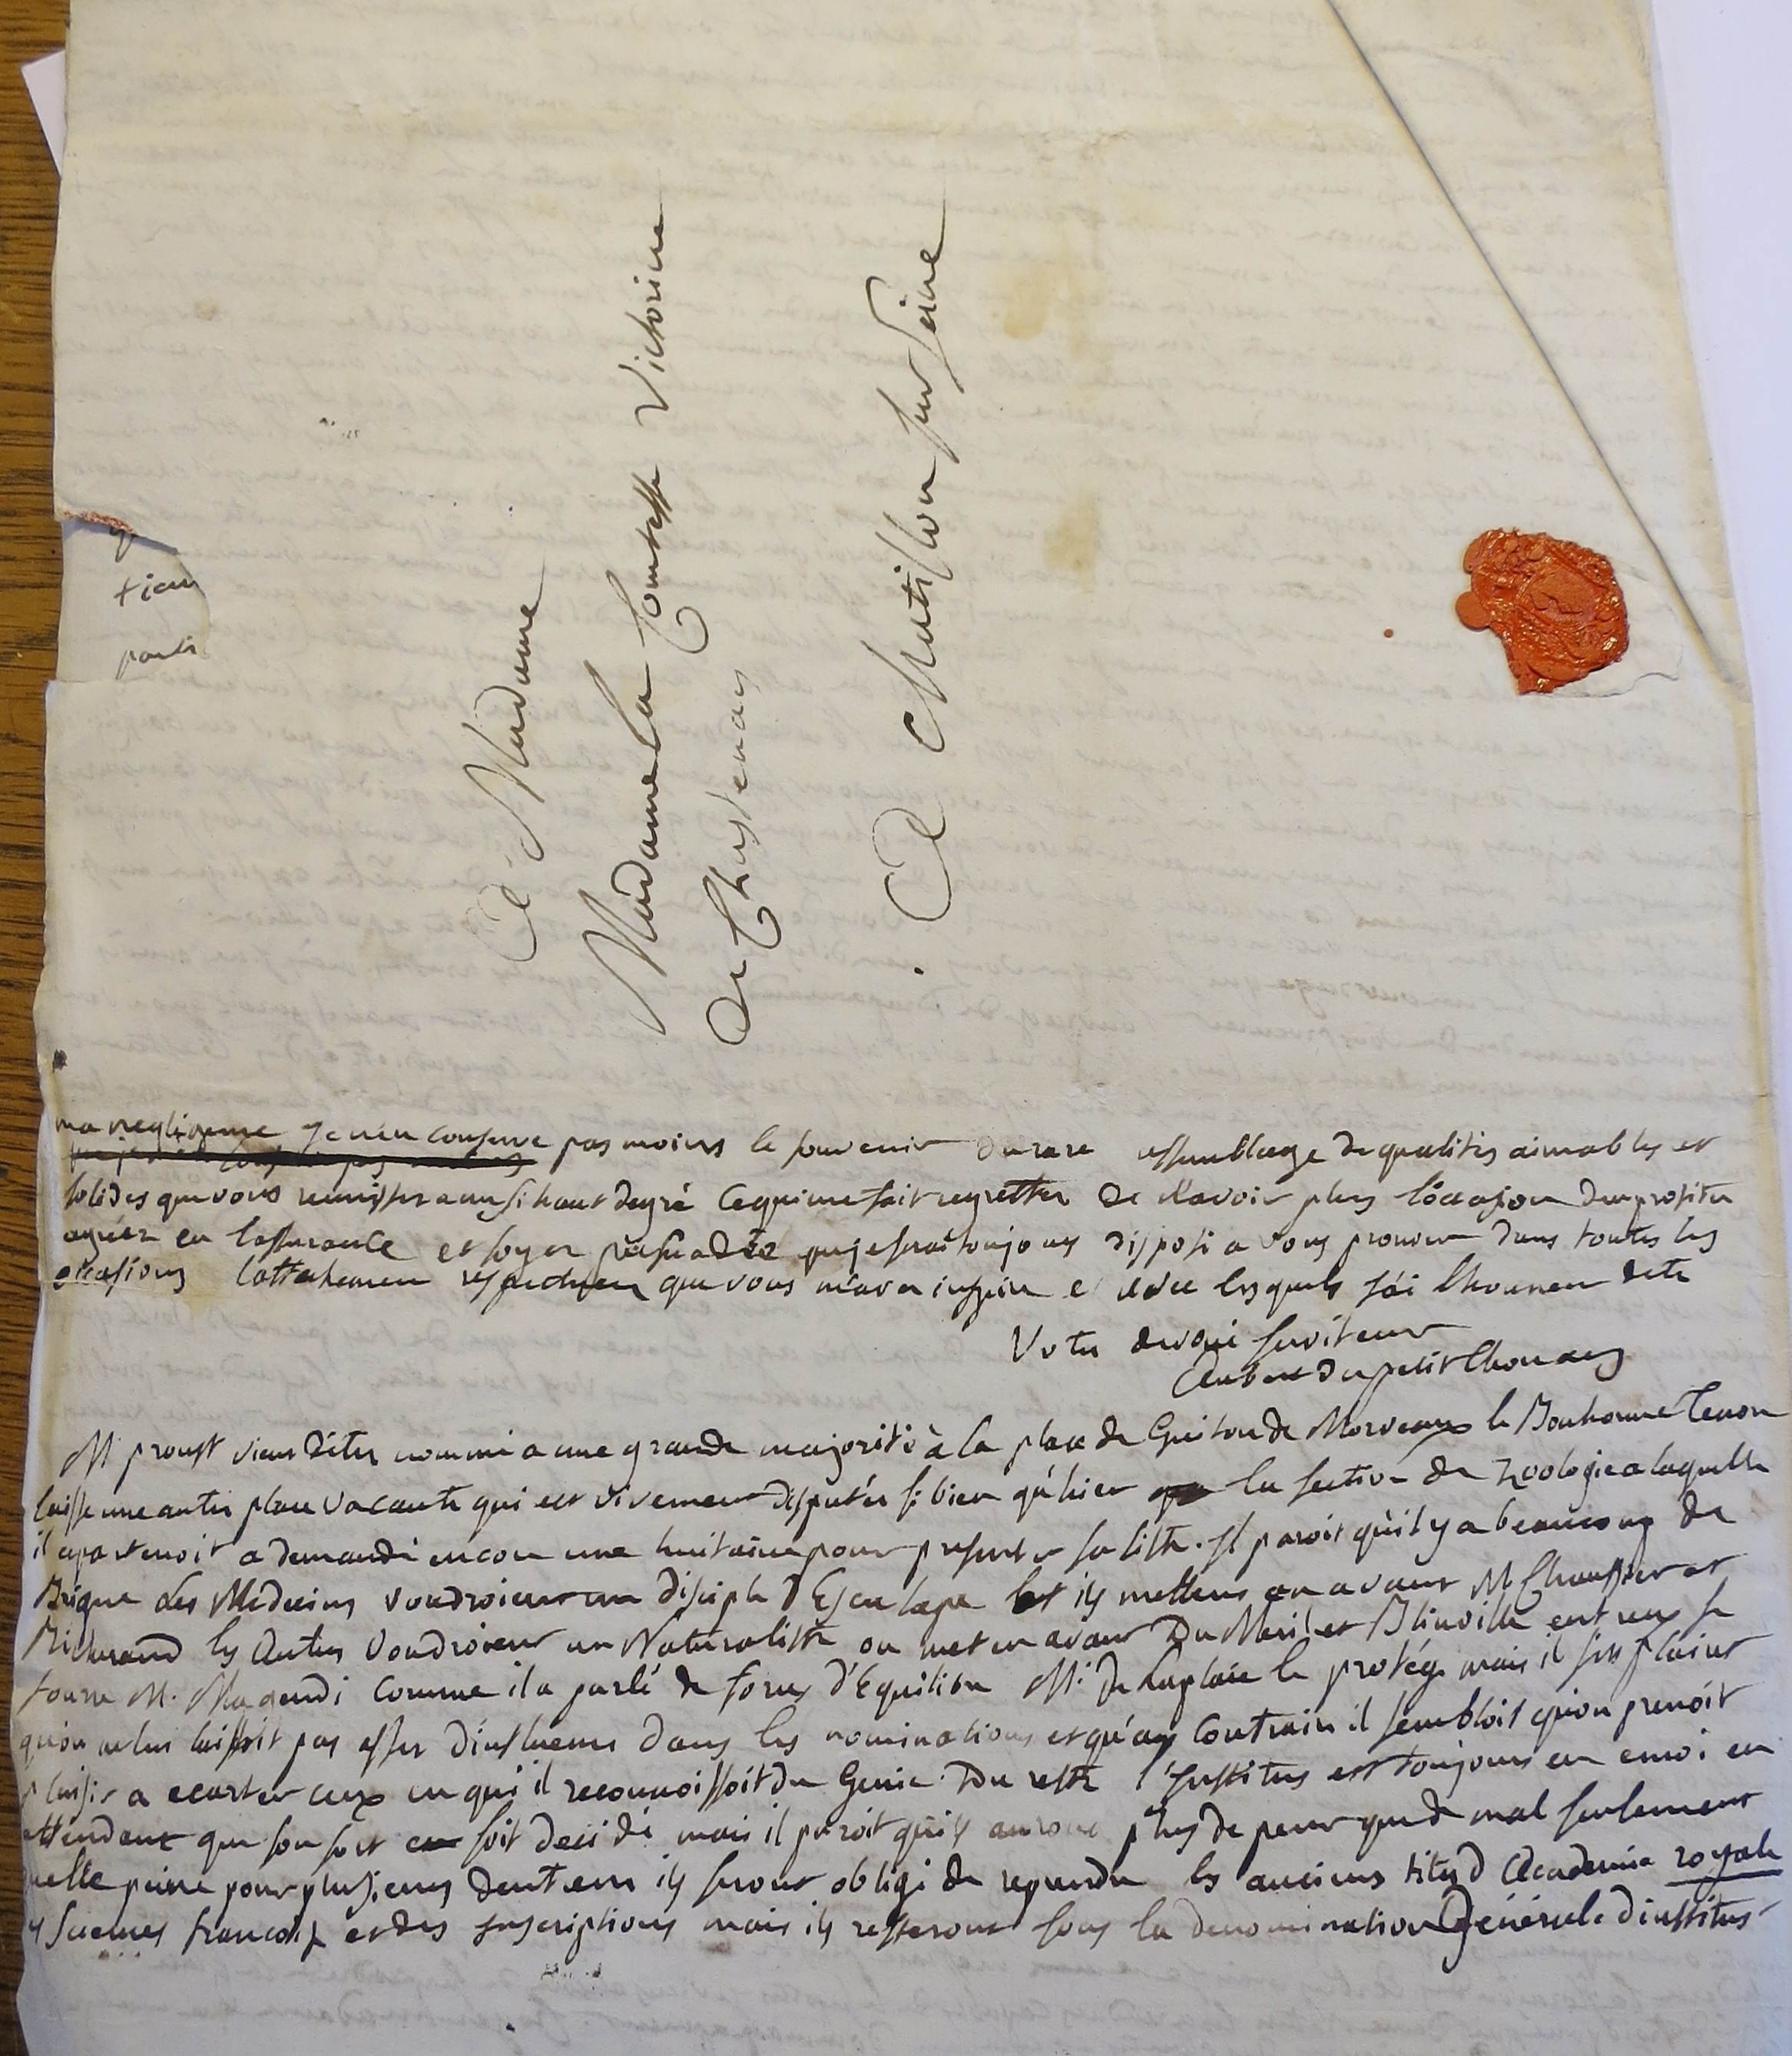 A Madame
Madame la Comtesse Victorine
De Chastenay
A Chatillon sur Seine
q
tien
parti
ma negligence Je n'en conserve pas moins le souvenir du rare assemblage de qualités aimables et
solides que vous reunissez a un si haut degré Ce qui me fait regretter de n'avoir plus l'occasion d'en profiter
agréez en l'assurance et soyez persuadée que je serai toujours disposé a vous prouver dans toutes les
occasions l'attachement respectueux que vous m'avez inspiré e avec lesquels j'ai l'honneur detre
Votre devoué serviteur
Aubert du petit Thouars
M proust vient dêtre nommé a une grande majorité à la place de Guiton de Morveaux le Bonhomme Tenon
laisse une autre place vacante qui est vivement disputée si bien qu'hier la section de Zoologie a laquelle
il apartenoit a demandé encore une huitaine pour presenter sa liste. Il paroit qu'il y a beaucoup de
Brigue Les Medecins voudroient un disciple d'Esculape et ils mettent en avant M Chaussier et
Richerand les Autres voudroient un Naturaliste on met en avant Du Meril et Blinville entre eux se
fourre M. Magendi Comme il a parlé de forces d'Equilibre M. De Laplace le protége mais il s'est plaint
qu'on ne lui laissoit pas assez d'influence dans les nominations et qu'au Contraire il sembloit qu'on prenoit
plaisir a ecarter ceux en qui il reconnoissoit du Genie. Du reste l'Institut est toujours en emoi en
attendant que son sort soit decidé mais il paroit qu'ils auront plus de peur que de mal seulement
quelle peine pour plusieurs dentre eux ils seront obligé de reprendre les anciens titres d'Academie royale
des Sciences francoise et des Inscriptions mais ils resteront sous la denomination Générale d'institut